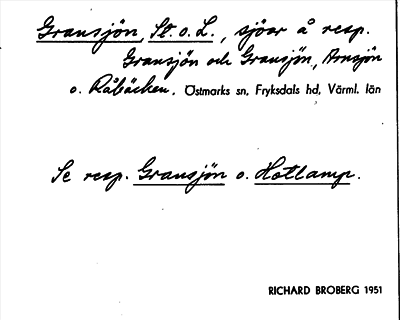 Gransjön, St. o. L., sjöar å resp.
Gransjön och Gransjön, Arnsjön
o. Råbäcken. Östmarks sn, Fryksdals hd, Värml. län
Se resp. Gransjön o. Hotlamp.
RICHARD BROBERG 1951